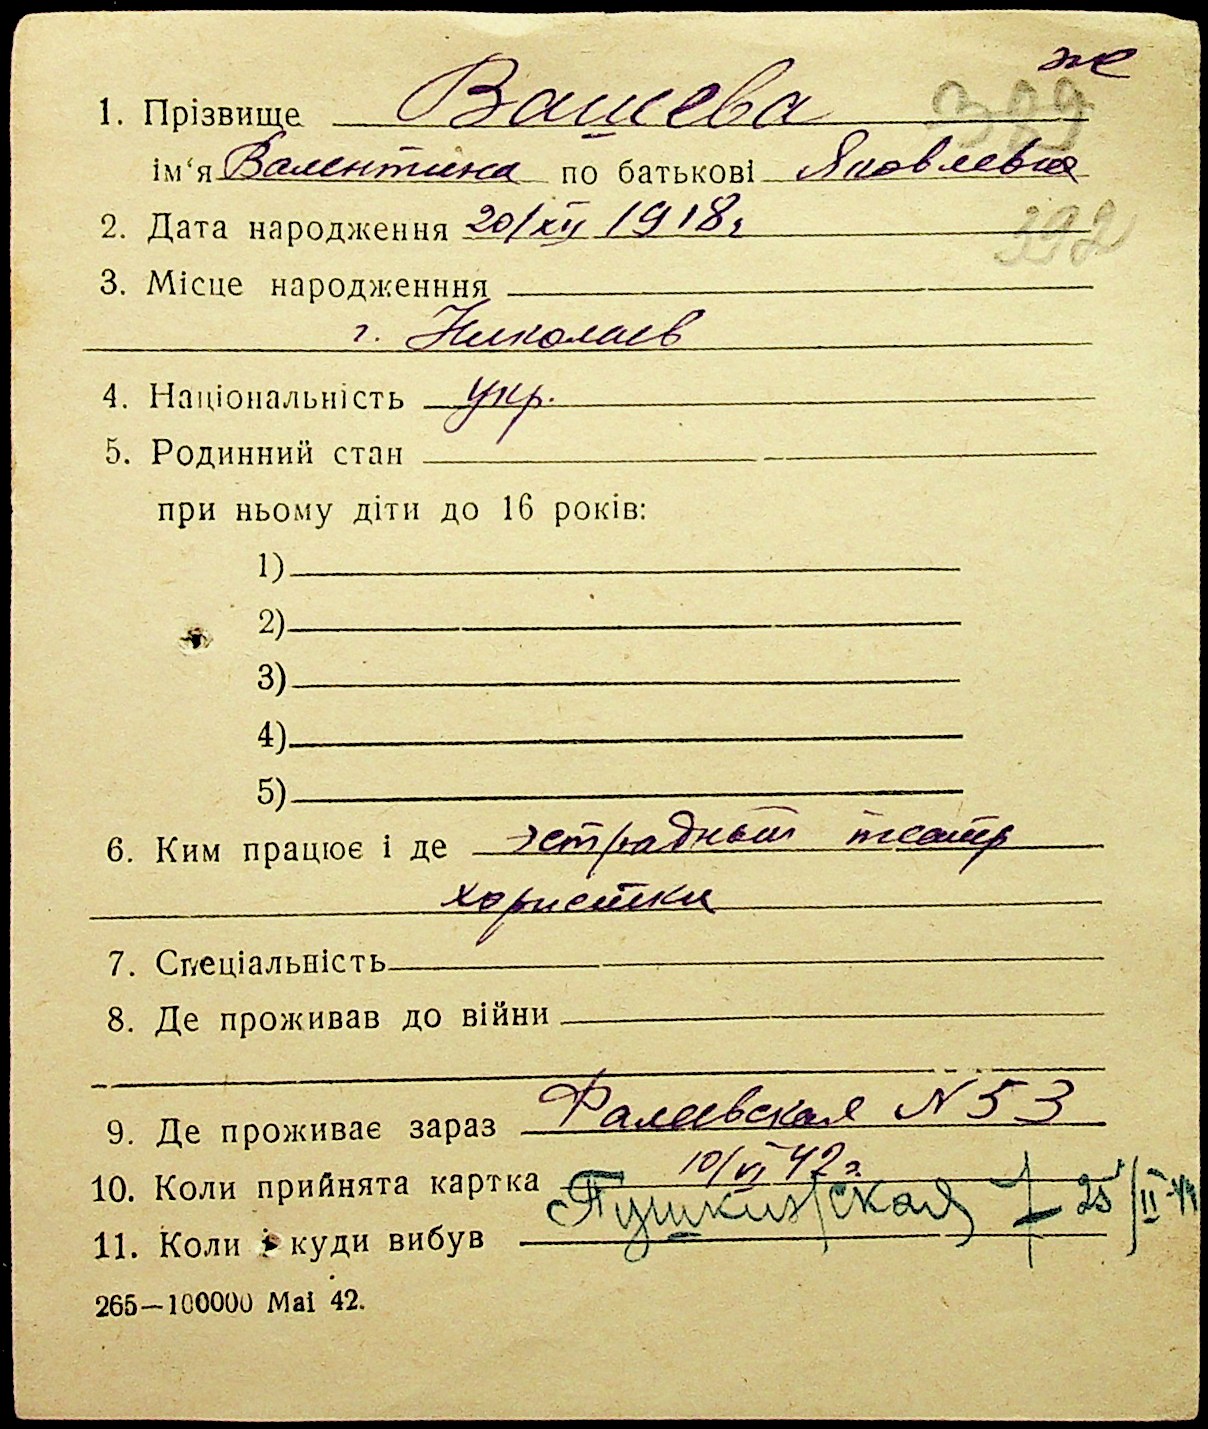 же
1. Прізвище Вашева 389
ім‘я Валентина по батькові Яковлевна
2. Дата народження 20/XII 1918г
392
3. Місце народженння
г. Николаев
4. Національність укр.
5. Родинний стан
при ньому діти до 16 років:
1)
2)
3)
4)
5)
6. Ким працює і де эстрадный театр
хористка
7. Спеціальність
8. Де проживав до війни
9. Де проживає зараз Фалеевская N 53
10. Коли прийнята картка 10/VI 42г.
11. Коли і куди вибув Пушкинская 7 25/II-
265—100000 Маі 42.